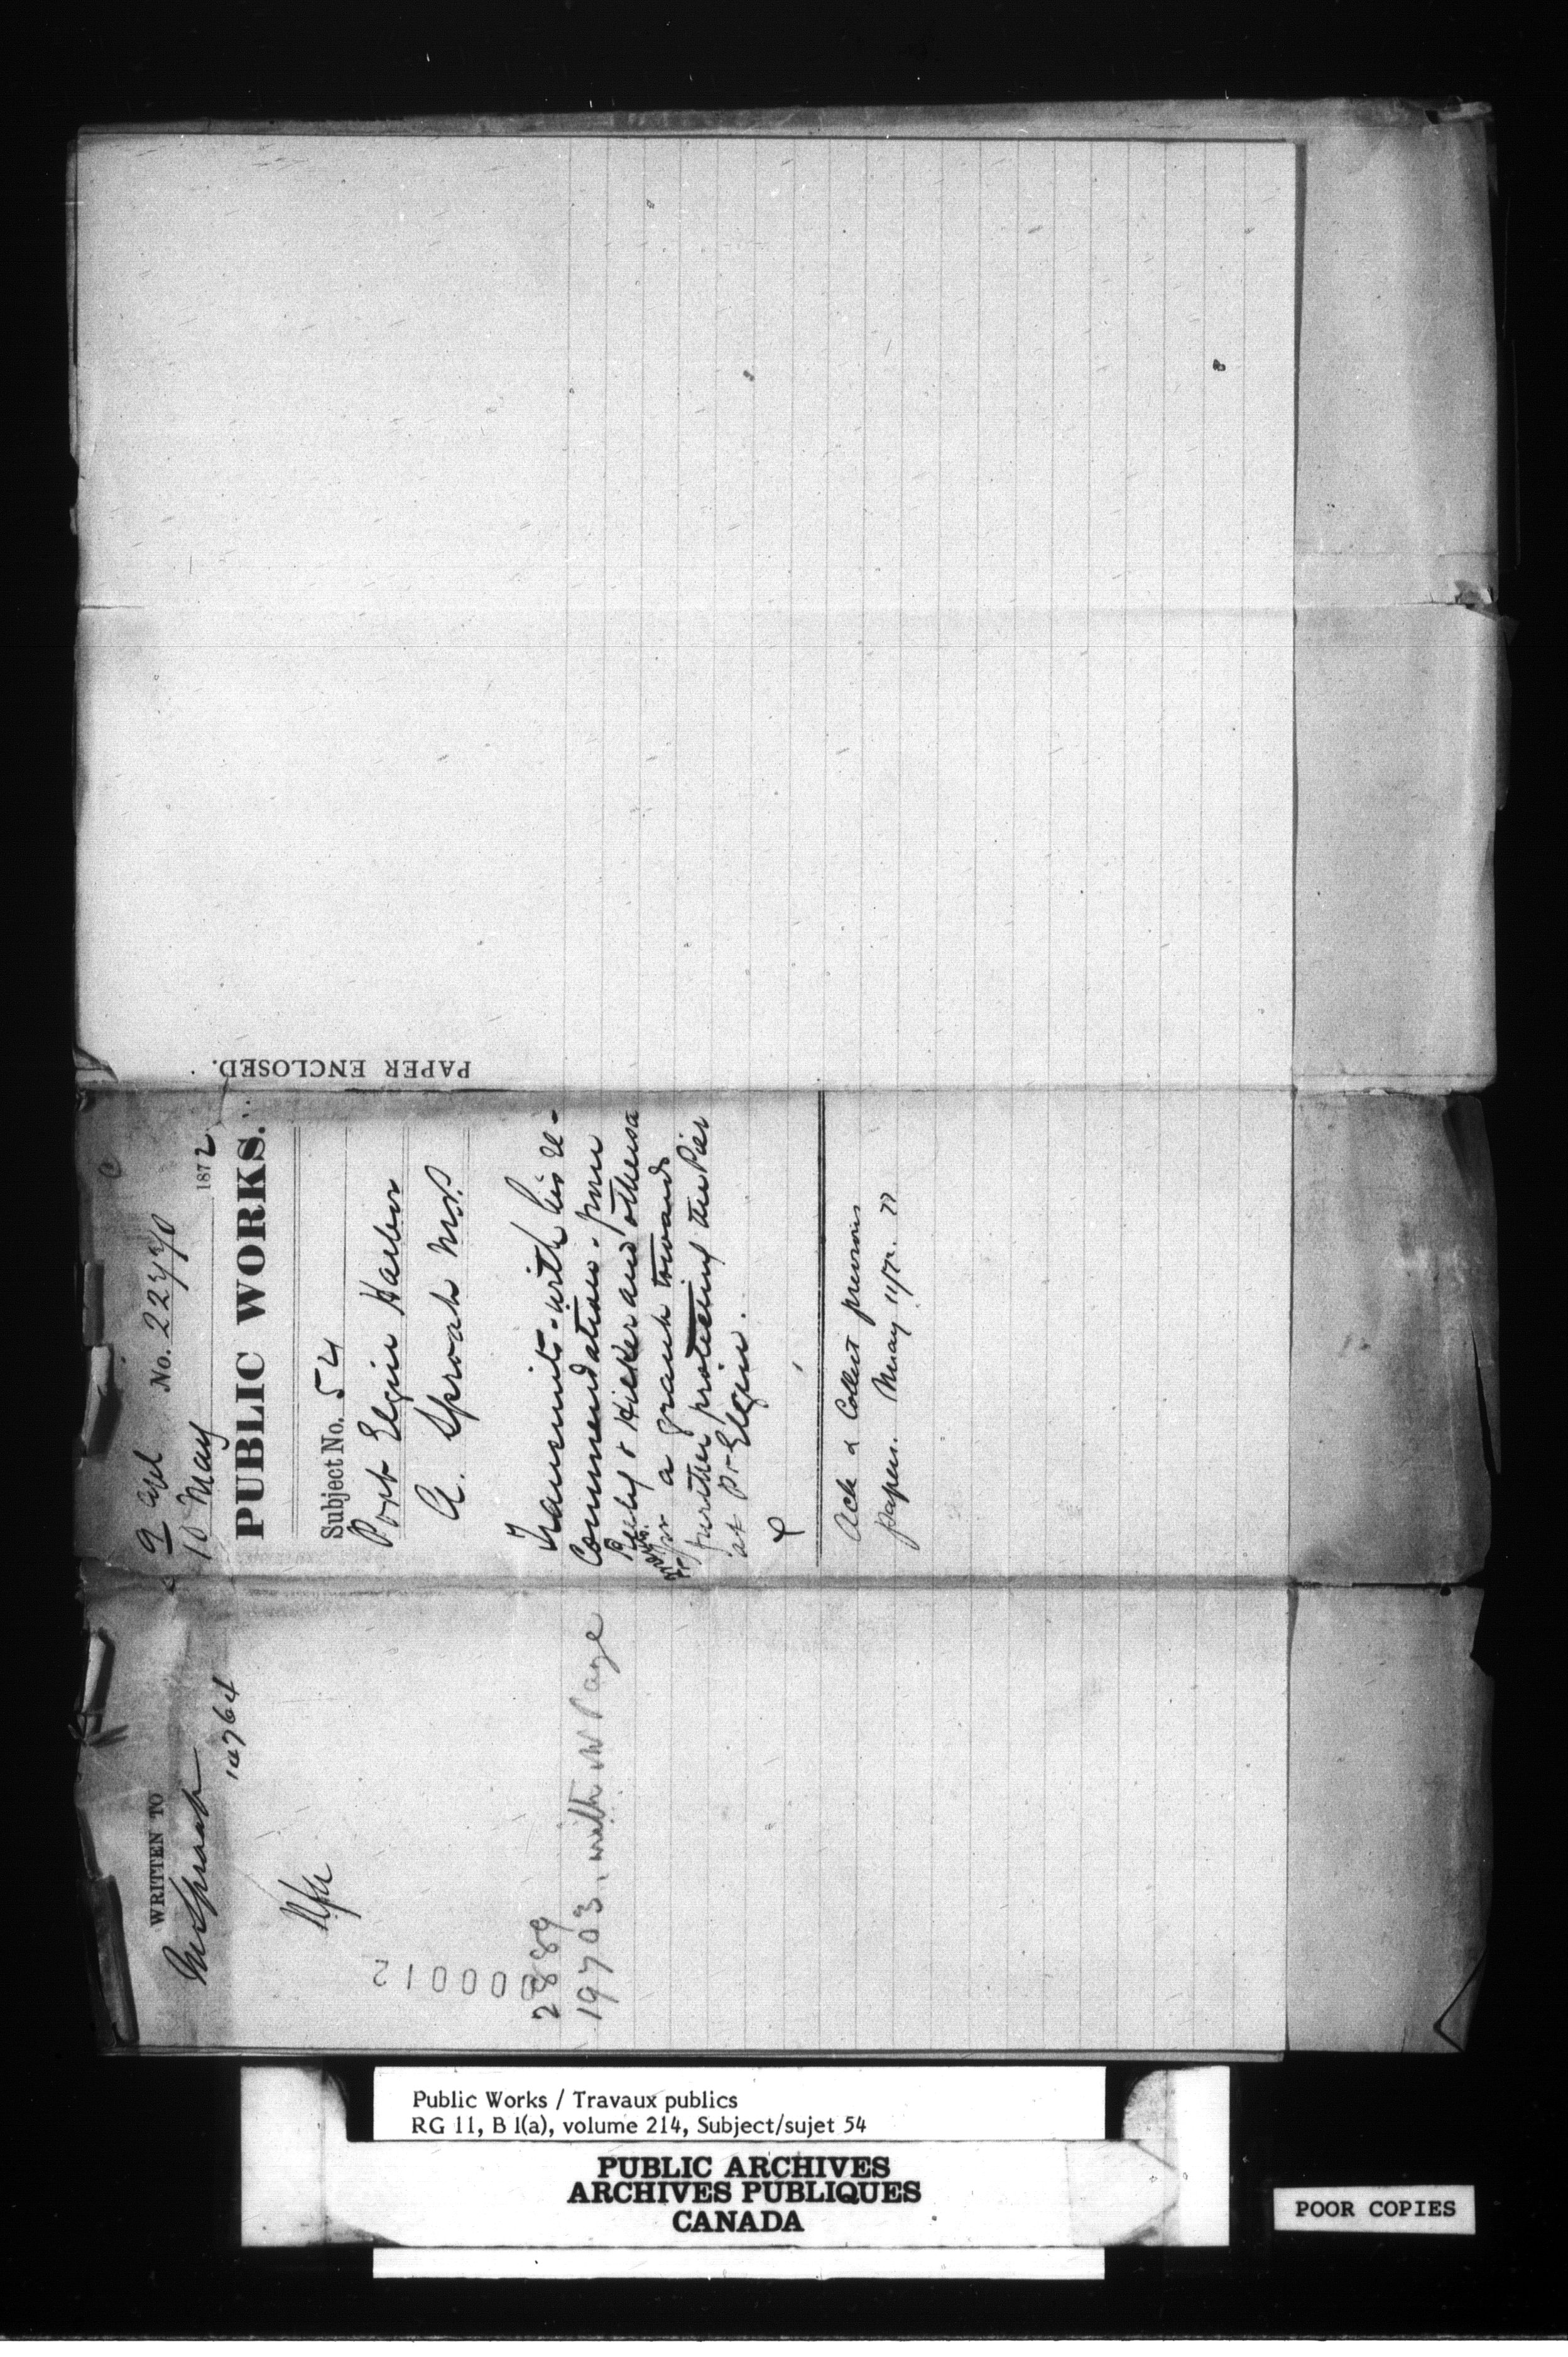 9 Apl No. 22770
10 May 1872
PUBLIC WORKS.
Subject No. 54
Port Elgin Harbor
A. Sproat M.P.
Transmits - with his re-
commendation - from
Hilker and others a
for a grant towards
further protecting the Pier
at Pt Elgin.
Ack & Collect previous
papers. May 11/72.
PAPER ENCLOSED.
WRITTEN TO
Mr Sproat
2889
19703. with W Page
000012
Public Works / Travaux publics
RG 11, B 1(a), volume 214, Subject/sujet 54
PUBLIC ARCHIVES
ARCHIVES PUBLIQUES
CANADA
POOR COPIES